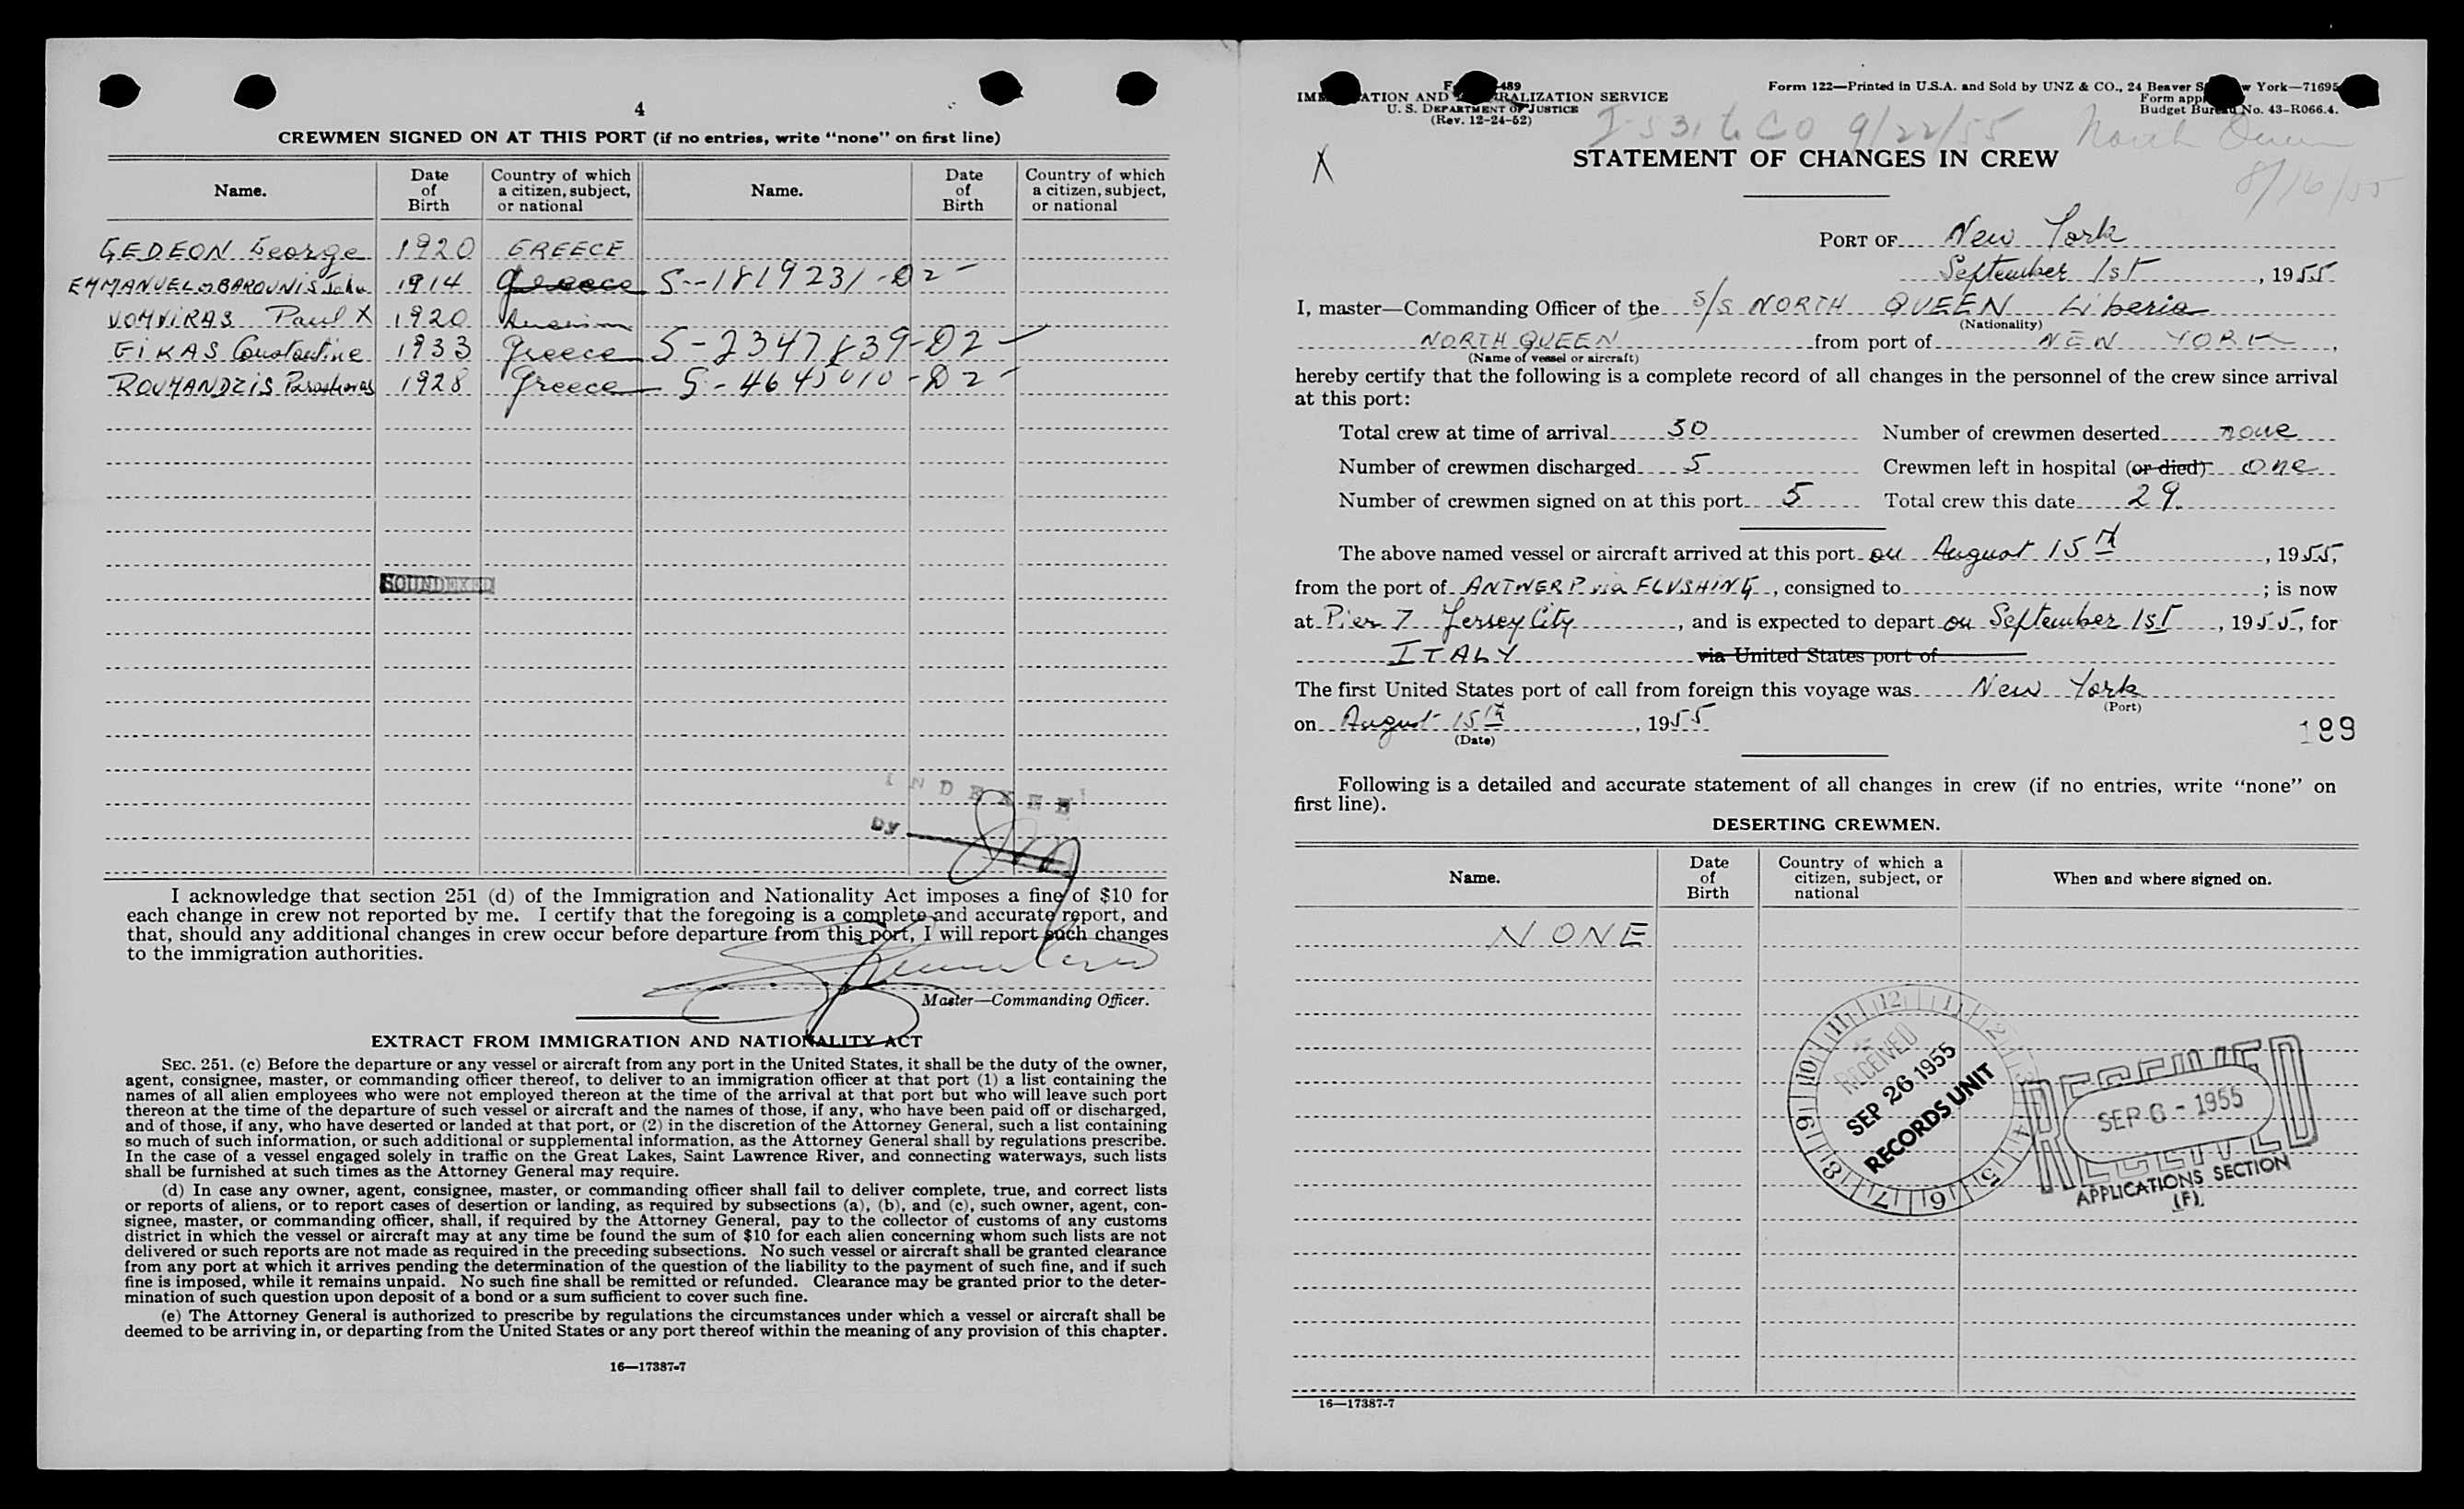 4
CREWMEN SIGNED ON AT THIS PORT (if no entries, write "none" on first line)
Name. Date of Birth Country of which a citizen, subject, or national Name. Date of Birth Country of which a citizen, subject, or national
GEDEON George 1920 GREECE
EMMANUEL BAROUNIS John 1914 Greece S--1819231-D2-
VOMVIRAS Paul X 1920
GIKAS Constantine 1933 Greece S-2347839-D2-
ROUMANDZIS 1928 Greece S-4645010-D2-
SOUNDEXED
INDEXED
By
I acknowledge that section 251 (d) of the Immigration and Nationality Act imposes a fine of $10 for
each change in crew not reported by me. I certify that the foregoing is a complete and accurate report, and
that, should any additional changes in crew occur before departure from this port, I will report such changes
to the immigration authorities.
Master—Commanding Officer.
EXTRACT FROM IMMIGRATION AND NATIONALITY ACT
SEC. 251. (c) Before the departure or any vessel or aircraft from any port in the United States, it shall be the duty of the owner,
agent, consignee, master, or commanding officer thereof, to deliver to an immigration officer at that port (1) a list containing the
names of all alien employees who were not employed thereon at the time of the arrival at that port but who will leave such port
thereon at the time of the departure of such vessel or aircraft and the names of those, if any, who have been paid off or discharged,
and of those, if any, who have deserted or landed at that port, or (2) in the discretion of the Attorney General, such a list containing
so much of such information, or such additional or supplemental information, as the Attorney General shall by regulations prescribe.
In the case of a vessel engaged solely in traffic on the Great Lakes, Saint Lawrence River, and connecting waterways, such lists
shall be furnished at such times as the Attorney General may require.
(d) In case any owner, agent, consignee, master, or commanding officer shall fail to deliver complete, true, and correct lists
or reports of aliens, or to report cases of desertion or landing, as required by subsections (a), (b), and (c), such owner, agent, con-
signee, master, or commanding officer, shall, if required by the Attorney General, pay to the collector of customs of any customs
district in which the vessel or aircraft may at any time be found the sum of $10 for each alien concerning whom such lists are not
delivered or such reports are not made as required in the preceding subsections. No such vessel or aircraft shall be granted clearance
from any port at which it arrives pending the determination of the question of the liability to the payment of such fine, and if such
fine is imposed, while it remains unpaid. No such fine shall be remitted or refunded. Clearance may be granted prior to the deter-
mination of such question upon deposit of a bond or a sum sufficient to cover such fine.
(e) The Attorney General is authorized to prescribe by regulations the circumstances under which a vessel or aircraft shall be
deemed to be arriving in, or departing from the United States or any port thereof within the meaning of any provision of this chapter.
16—17387-7
489
IMMIGRATION AND NATURALIZATION SERVICE
U. S. DEPARTMENT OF JUSTICE
(Rev. 12-24-52)
Form 122—Printed in U.S.A. and Sold by UNZ & CO., 24 Beaver York—71695
Form app
Budget Bureau No. 43-R066.4.
I-531 to CO 9/22/55 North Queen
8/16/55
X
STATEMENT OF CHANGES IN CREW
PORT OF New York
September 1st, 1955
I, master—Commanding Officer of the S/S NORTH QUEEN Liberia
(Nationality)
NORTH QUEEN from port of NEW YORK,
(Name of vessel or aircraft)
hereby certify that the following is a complete record of all changes in the personnel of the crew since arrival
at this port:
Total crew at time of arrival 30 Number of crewmen deserted none
Number of crewmen discharged 5 Crewmen left in hospital (or died) one
Number of crewmen signed on at this port 5 Total crew this date 29
The above named vessel or aircraft arrived at this port on August 15th, 1955,
from the port of ANTWERP via FLUSHING, consigned to ; is now
at Pier 7 Jersey City, and is expected to depart on September 1st, 1955, for
ITALY via United States port of
The first United States port of call from foreign this voyage was New York
(Port)
on August 15th, 1955
(Date)
189
Following is a detailed and accurate statement of all changes in crew (if no entries, write "none" on
first line).
DESERTING CREWMEN.
Name. Date of Birth Country of which a citizen, subject, or national When and where signed on.
NONE
RECEIVED
SEP 26 1955
RECORDS UNIT
RECEIVED
SEP 6 - 1955
APPLICATIONS SECTION
(F)
16—17387-7